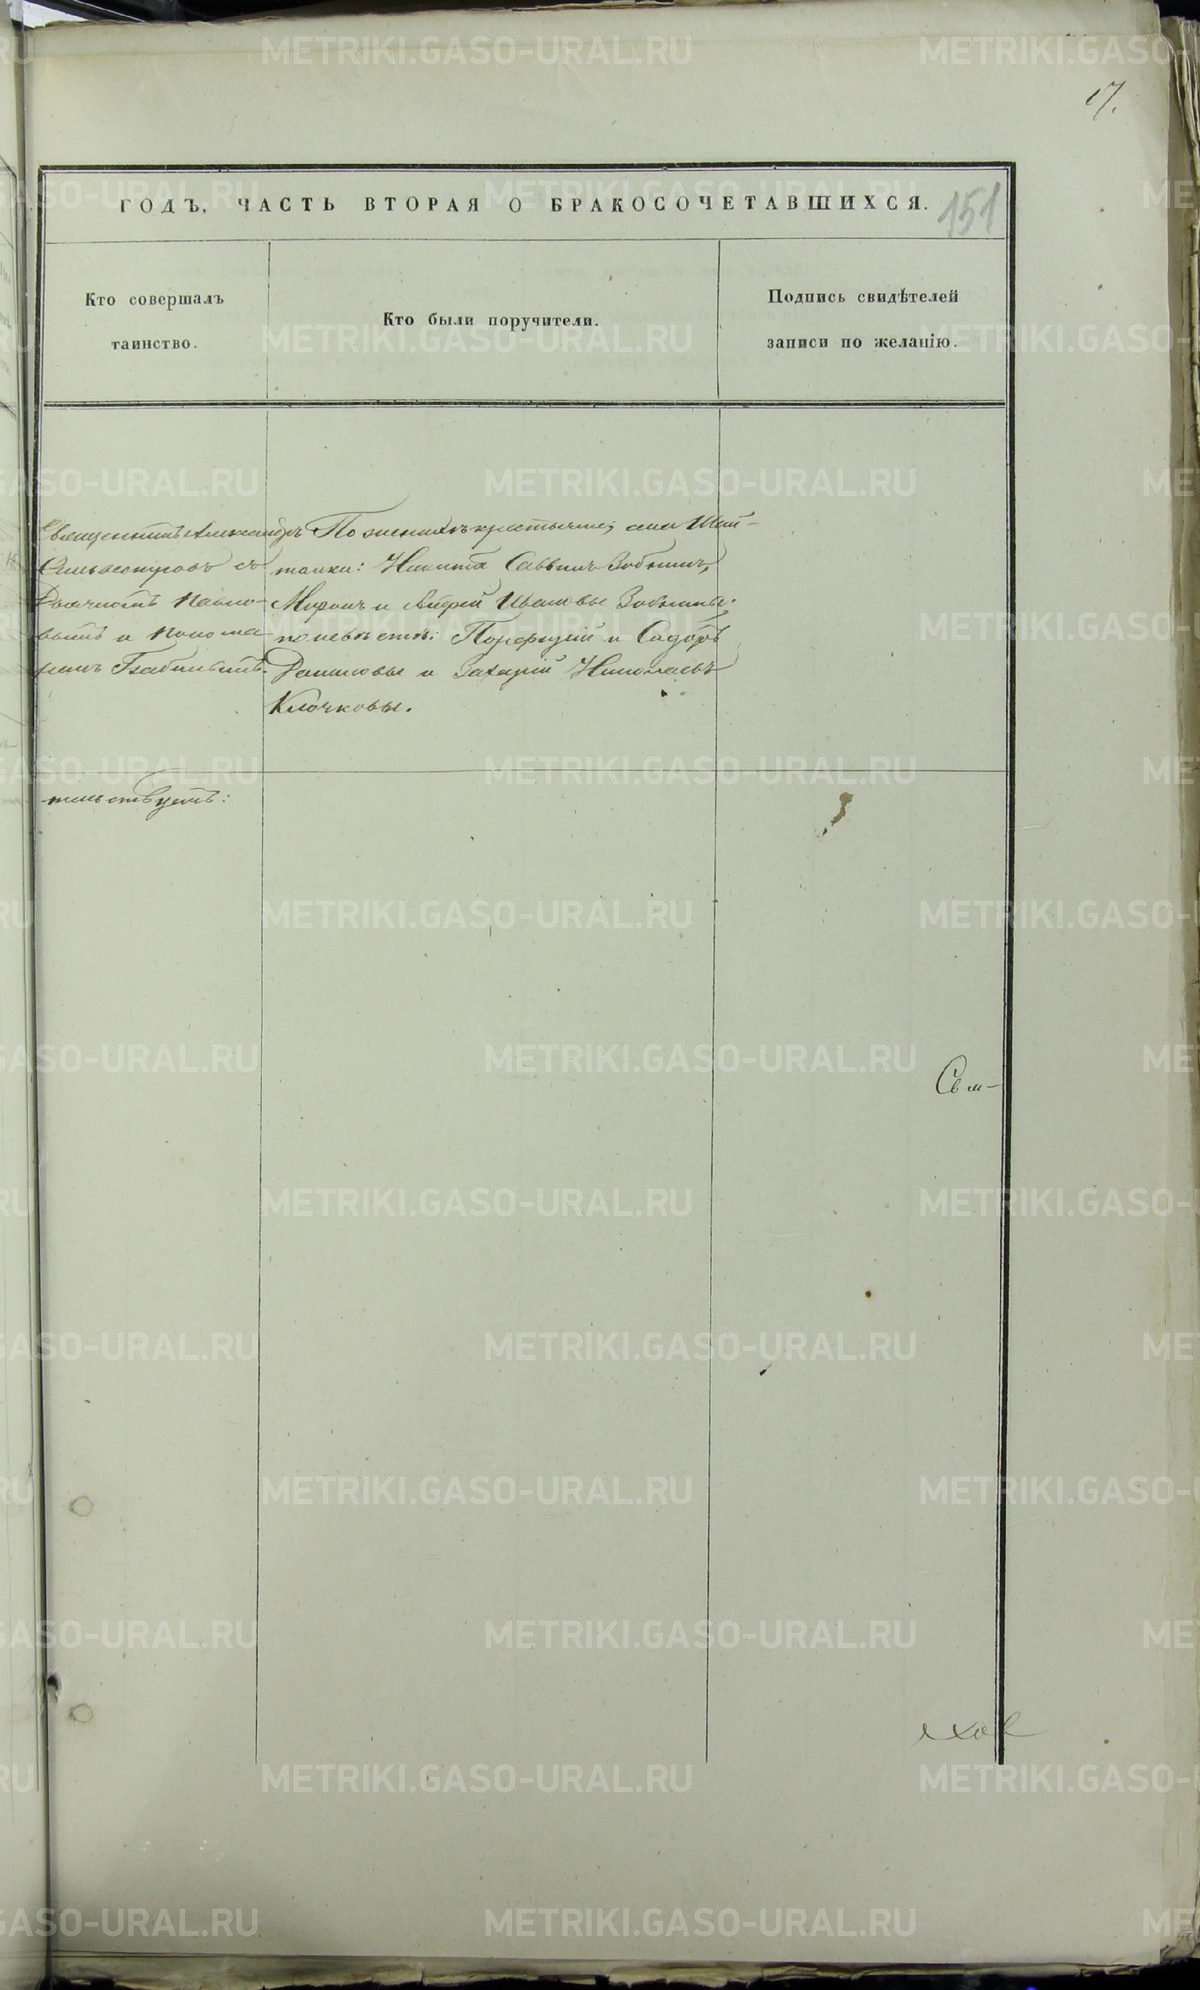 17.
ГОДЪ, ЧАСТЬ ВТОРАЯ О БРАКОСОЧЕТАВШИХСЯ.
151
Кто совершалъ
таинство.
Кто были поручители.
Подпись свидѣтелей
записи по желанію.
Священникъ Александръ
съ
Дьячкомъ Павло-
вымъ и Понома
ремъ
По женихѣ крестьяне, села Шай-
танки: Никита Саввинъ Зобнинъ,
Миронъ и Андрей Ивановы Зобнины.
по невѣстѣ: Порфирій и Сидоръ
Даниловы и Захарій Николаевъ
Клочковы.
тельствуетъ:
Свя-